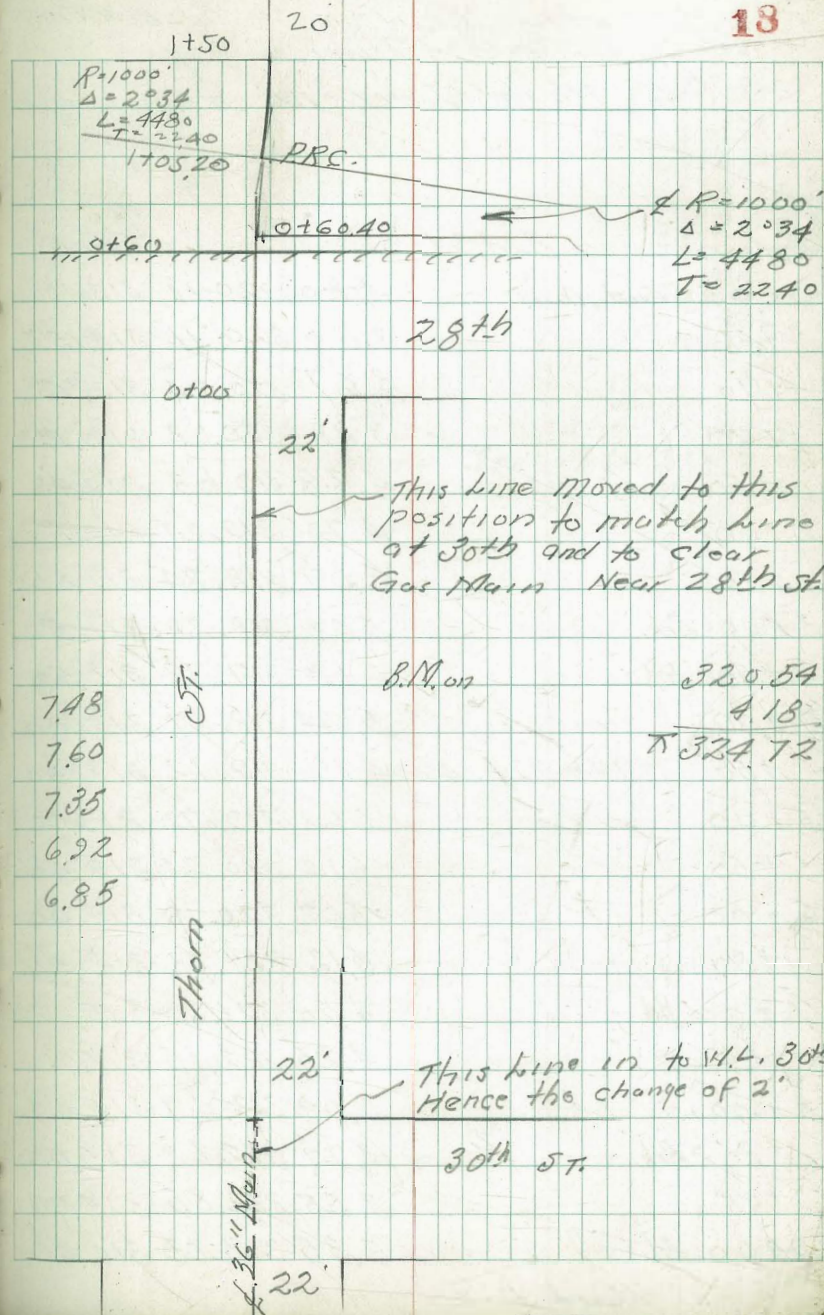 18
20
1+50
R=1000'
Δ = 2°34
L = 4480
T = 22.40
1+05.20
P.R.C.
℄ R=1000'
Δ = 2°34
L = 4480
T = 2240
0+60.40
0+60
28th
0+00
22'
This Line moved to this
position to match Line
at 30th and to clear
Gas Main Near 28th St.
B.M. on 320.54
4.18
⊼ 324.72
7.48
7.60
7.35
6.92
6.85
Thorn St.
22'
This Line in to W.L. 30th
Hence the change of 2'
30th St.
℄ 36" Main
22'